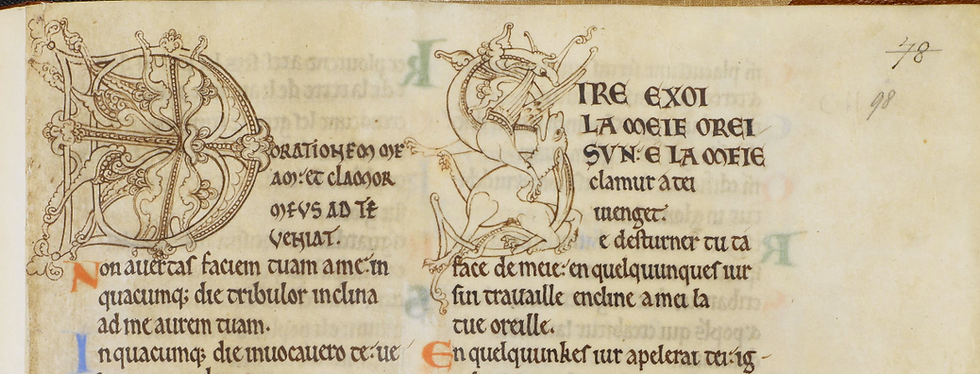 78
98
D
ORATIONEM ME
AM: et CLAMOR
MEUS AD TE
VENIAT.
Non auertas faciem tuam a me: in
quacumq; die tribulor inclina
ad me aurem tuam.
In quacumq; die inuocauero te: ue
SIRE EXOI
LA MEIE OREI
SUN: E LA MEIE
clamur a tei
uienget.
e desturner tu ta
face de meie: en quelquunques iur
sui travaille encline a mei la
tue oreille.
En quelquunkes iur apelerai tei: ig-